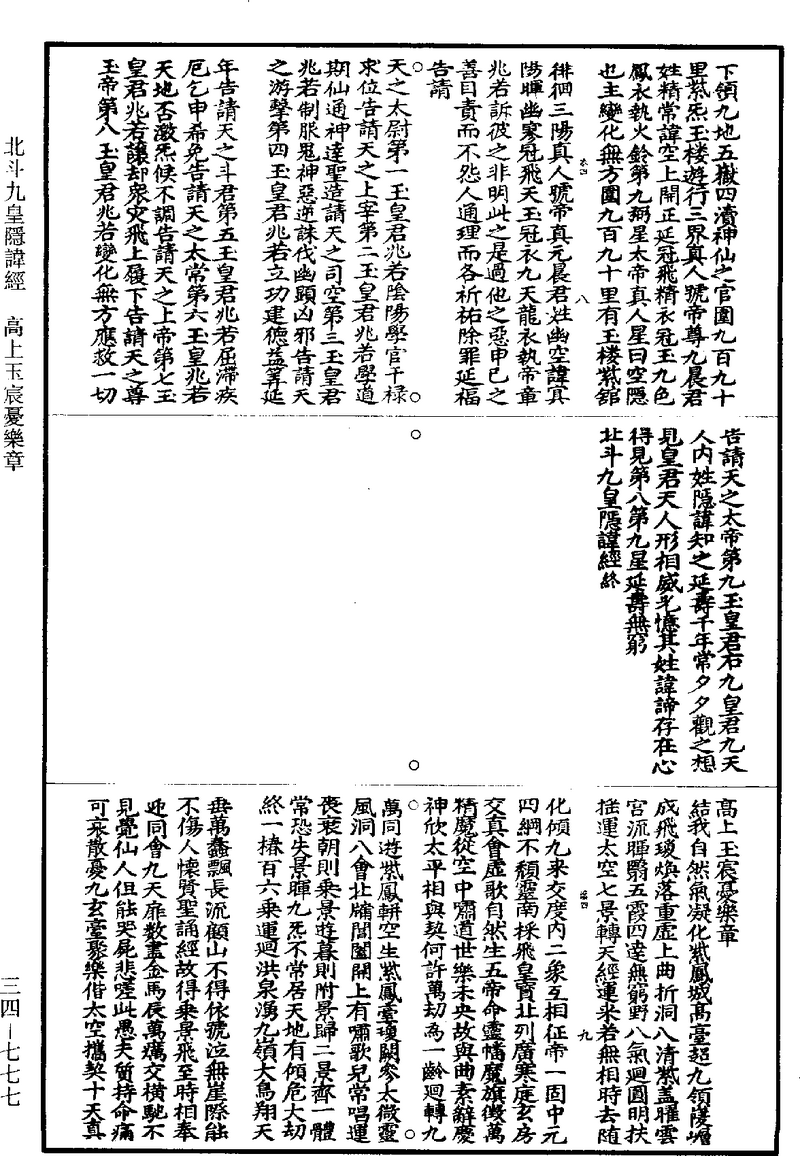 北斗九皇隱諱經　高上玉宸憂樂章
三四—七七七
下領九地五嶽四瀆神仙之官圍九百九十
里紫炁玉樓遊行三界真人號帝尊九晨君
姓精常諱空上開正延冠飛精衣冠玉九色
鳳衣執火鈴第九弼星太帝真人星曰空隱
也主變化無方圍九百九十里有玉樓紫館
八
徘徊三陽真人號帝真元晨君姓幽空諱冥
陽暉幽寥冠飛天玉冠衣九天龍衣執帝章
兆若訴彼之非明此之是過他之惡申己之
善曰責而不怨人通理而各祈祐除罪延福
告請
天之太尉第一玉皇君兆若陰陽學官干祿
求位告請天之上宰第二玉皇君兆若學道
期仙通神達聖造請天之司空第三玉皇君
兆若制服鬼神惡逆誅伐幽顯凶邪告請天
之游擊第四玉皇君兆若立功建德益筭延
年告請天之斗君第五玉皇君兆若屈滯疾
厄乞申希免告請天之太常第六玉皇兆若
天地否激炁候不調告請天之上帝第七玉
皇君兆若讓却衆災飛上履下告請天之尊
玉帝第八玉皇君兆若變化無方應救一切
告請天之太帝第九玉皇君右九皇君九天
人内姓隱諱知之延壽千年常夕夕觀之想
見皇君天人形相威光憶其姓諱諦存在心
得見第八第九星延壽無窮
北斗九皇隱諱經終
高上玉宸憂樂章
結我自然氣凝化紫鳳城高臺超九領蔆嵯
成飛瓊煥落重虛上曲折洞八清紫蓋曜雲
宮流暉翳五霞四達無窮野八氣迴圓明扶
搖運太空七景轉天經運來若無相時去随
九
化傾九来交度内二象互相征帝一固中元
四綱不頹靈南採飛皇實北列廣寒庭玄房
交真會虛歌自然生五帝命靈幡魔旗徵萬
精魔從空中嘯道世樂未央故與曲素辭慶
神欣太平相與契何許萬劫為一齡迴轉九
萬同遊紫鳳軿空生紫鳳臺瓊闕參太微靈
風洞八會北牖闇闔開上有嘯歌兒常唱運
喪衰朝則乘景遊暮則附景歸二景齊一體
常恐失景暉九炁不常居天地有傾危大劫
終一椿百六乘運迴洪泉湧九嶺大鳥翔天
毋萬螽飄長流顧山不得依號泣無崖際能
不傷人懷賢聖誦經故得乘景飛至時相奉
迎同會九天扉數盡金馬辰萬癘交橫馳不
見覺仙人但能哭屍悲嗟此愚夫質持命痛
可哀散憂九玄臺聚樂偕太空攜契十天真